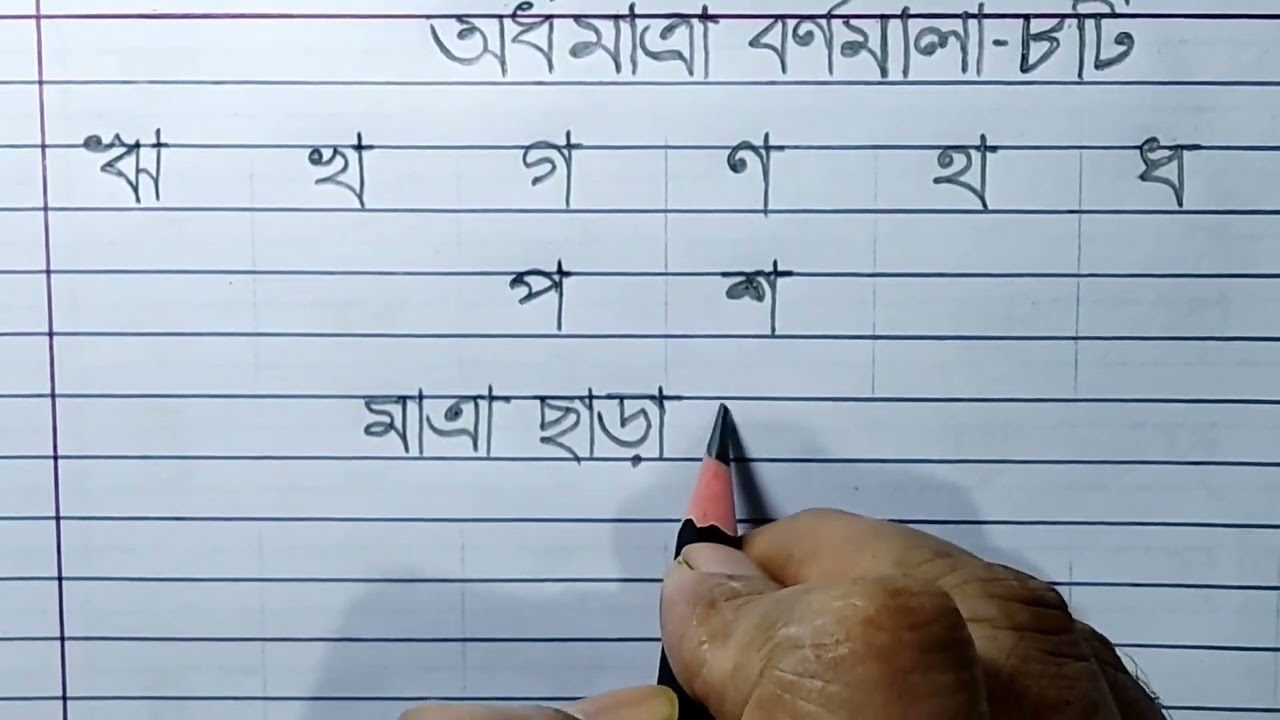 অর্ধমাত্রা বর্ণমালা-৮টি
ঋ খ গ ণ থ ধ
প শ
মাত্রা ছাড়া